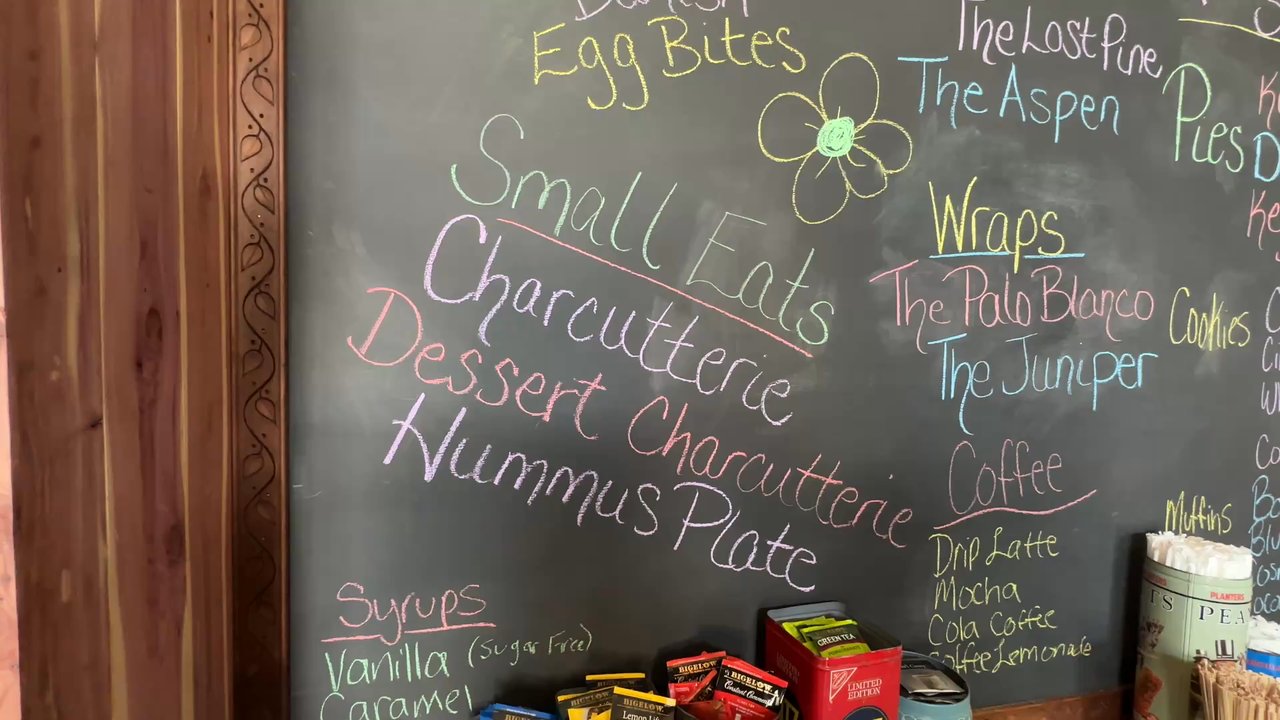 Danish
Egg Bites
Small Eats
Charcutterie
Dessert Charcutterie
Hummus Plate
Syrups
Vanilla (Sugar Free)
Caramel
The Lost Pine
The Aspen
Wraps
The Palo Blanco
The Juniper
Coffee
Drip Latte
Mocha
Cola Coffee
Coffee Lemonade
Pies
Cookies
Muffins
BIGELOW
BIGELOW
BIGELOW
BIGELOW
Constant Comment
Lemon Lift
GREEN TEA
LIMITED
EDITION
PLANTERS
TS PEA